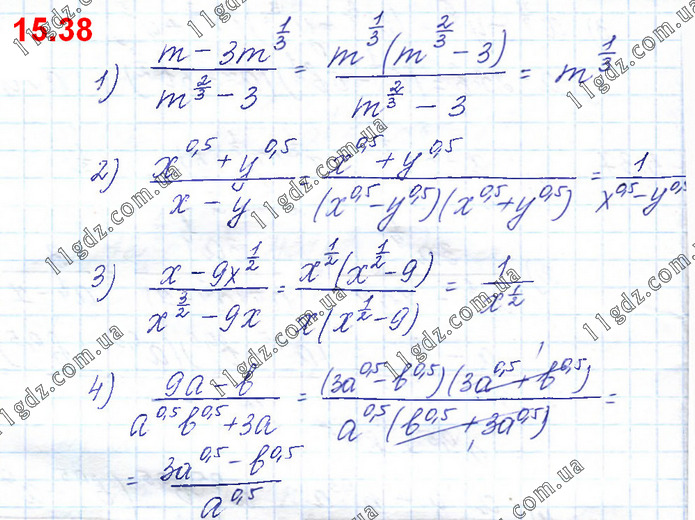 15.38
1) \frac{m - 3m^{\frac{1}{3}}}{m^{\frac{2}{3}} - 3} = \frac{m^{\frac{1}{3}}(m^{\frac{2}{3}} - 3)}{m^{\frac{2}{3}} - 3} = m^{\frac{1}{3}}
2) \frac{x^{0,5} + y^{0,5}}{x - y} = \frac{x^{0,5} + y^{0,5}}{(x^{0,5} - y^{0,5})(x^{0,5} + y^{0,5})} = \frac{1}{x^{0,5} - y^{0,5}}
3) \frac{x - 9x^{\frac{1}{2}}}{x^{\frac{3}{2}} - 9x} = \frac{x^{\frac{1}{2}}(x^{\frac{1}{2}} - 9)}{x(x^{\frac{1}{2}} - 9)} = \frac{1}{x^{\frac{1}{2}}}
4) \frac{9a - b}{a^{0,5}b^{0,5} + 3a} = \frac{(3a^{0,5} - b^{0,5})(3a^{0,5} + b^{0,5})}{a^{0,5}(b^{0,5} + 3a^{0,5})} =
= \frac{3a^{0,5} - b^{0,5}}{a^{0,5}}
11gdz.com.ua